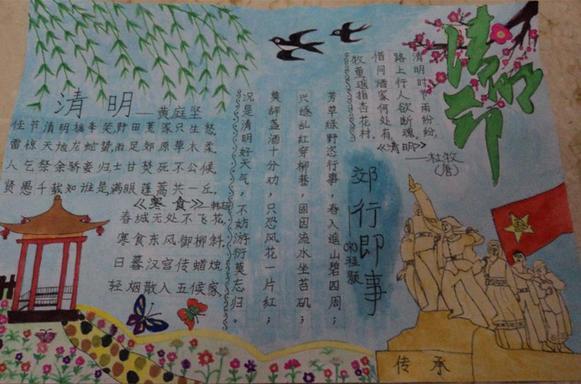 清明节
清明时节雨纷纷,
路上行人欲断魂,
借问酒家何处有,
牧童遥指杏花村。
《清明》
——杜牧
(唐)
清明——黄庭坚
佳节清明桃李笑野田荒冢只生愁
雷惊天地龙蛇蛰雨足郊原草木柔
人乞祭余骄妾归士甘焚死不公候
贤愚千载知谁是满眼蓬蒿共一丘。
《寒食》
春城无处不飞花,
寒食东风御柳斜,
日暮汉宫传蜡烛,
轻烟散入五侯家。
郊行即事
(宋)程颢
芳草绿野恣行事,春入遥山碧四周;
兴逐乱红穿柳巷,固因流水坐苔矶;
莫辞盏酒十分劝,只恐风花一片红;
况是清明好天气,不妨游衍莫忘归。
传承